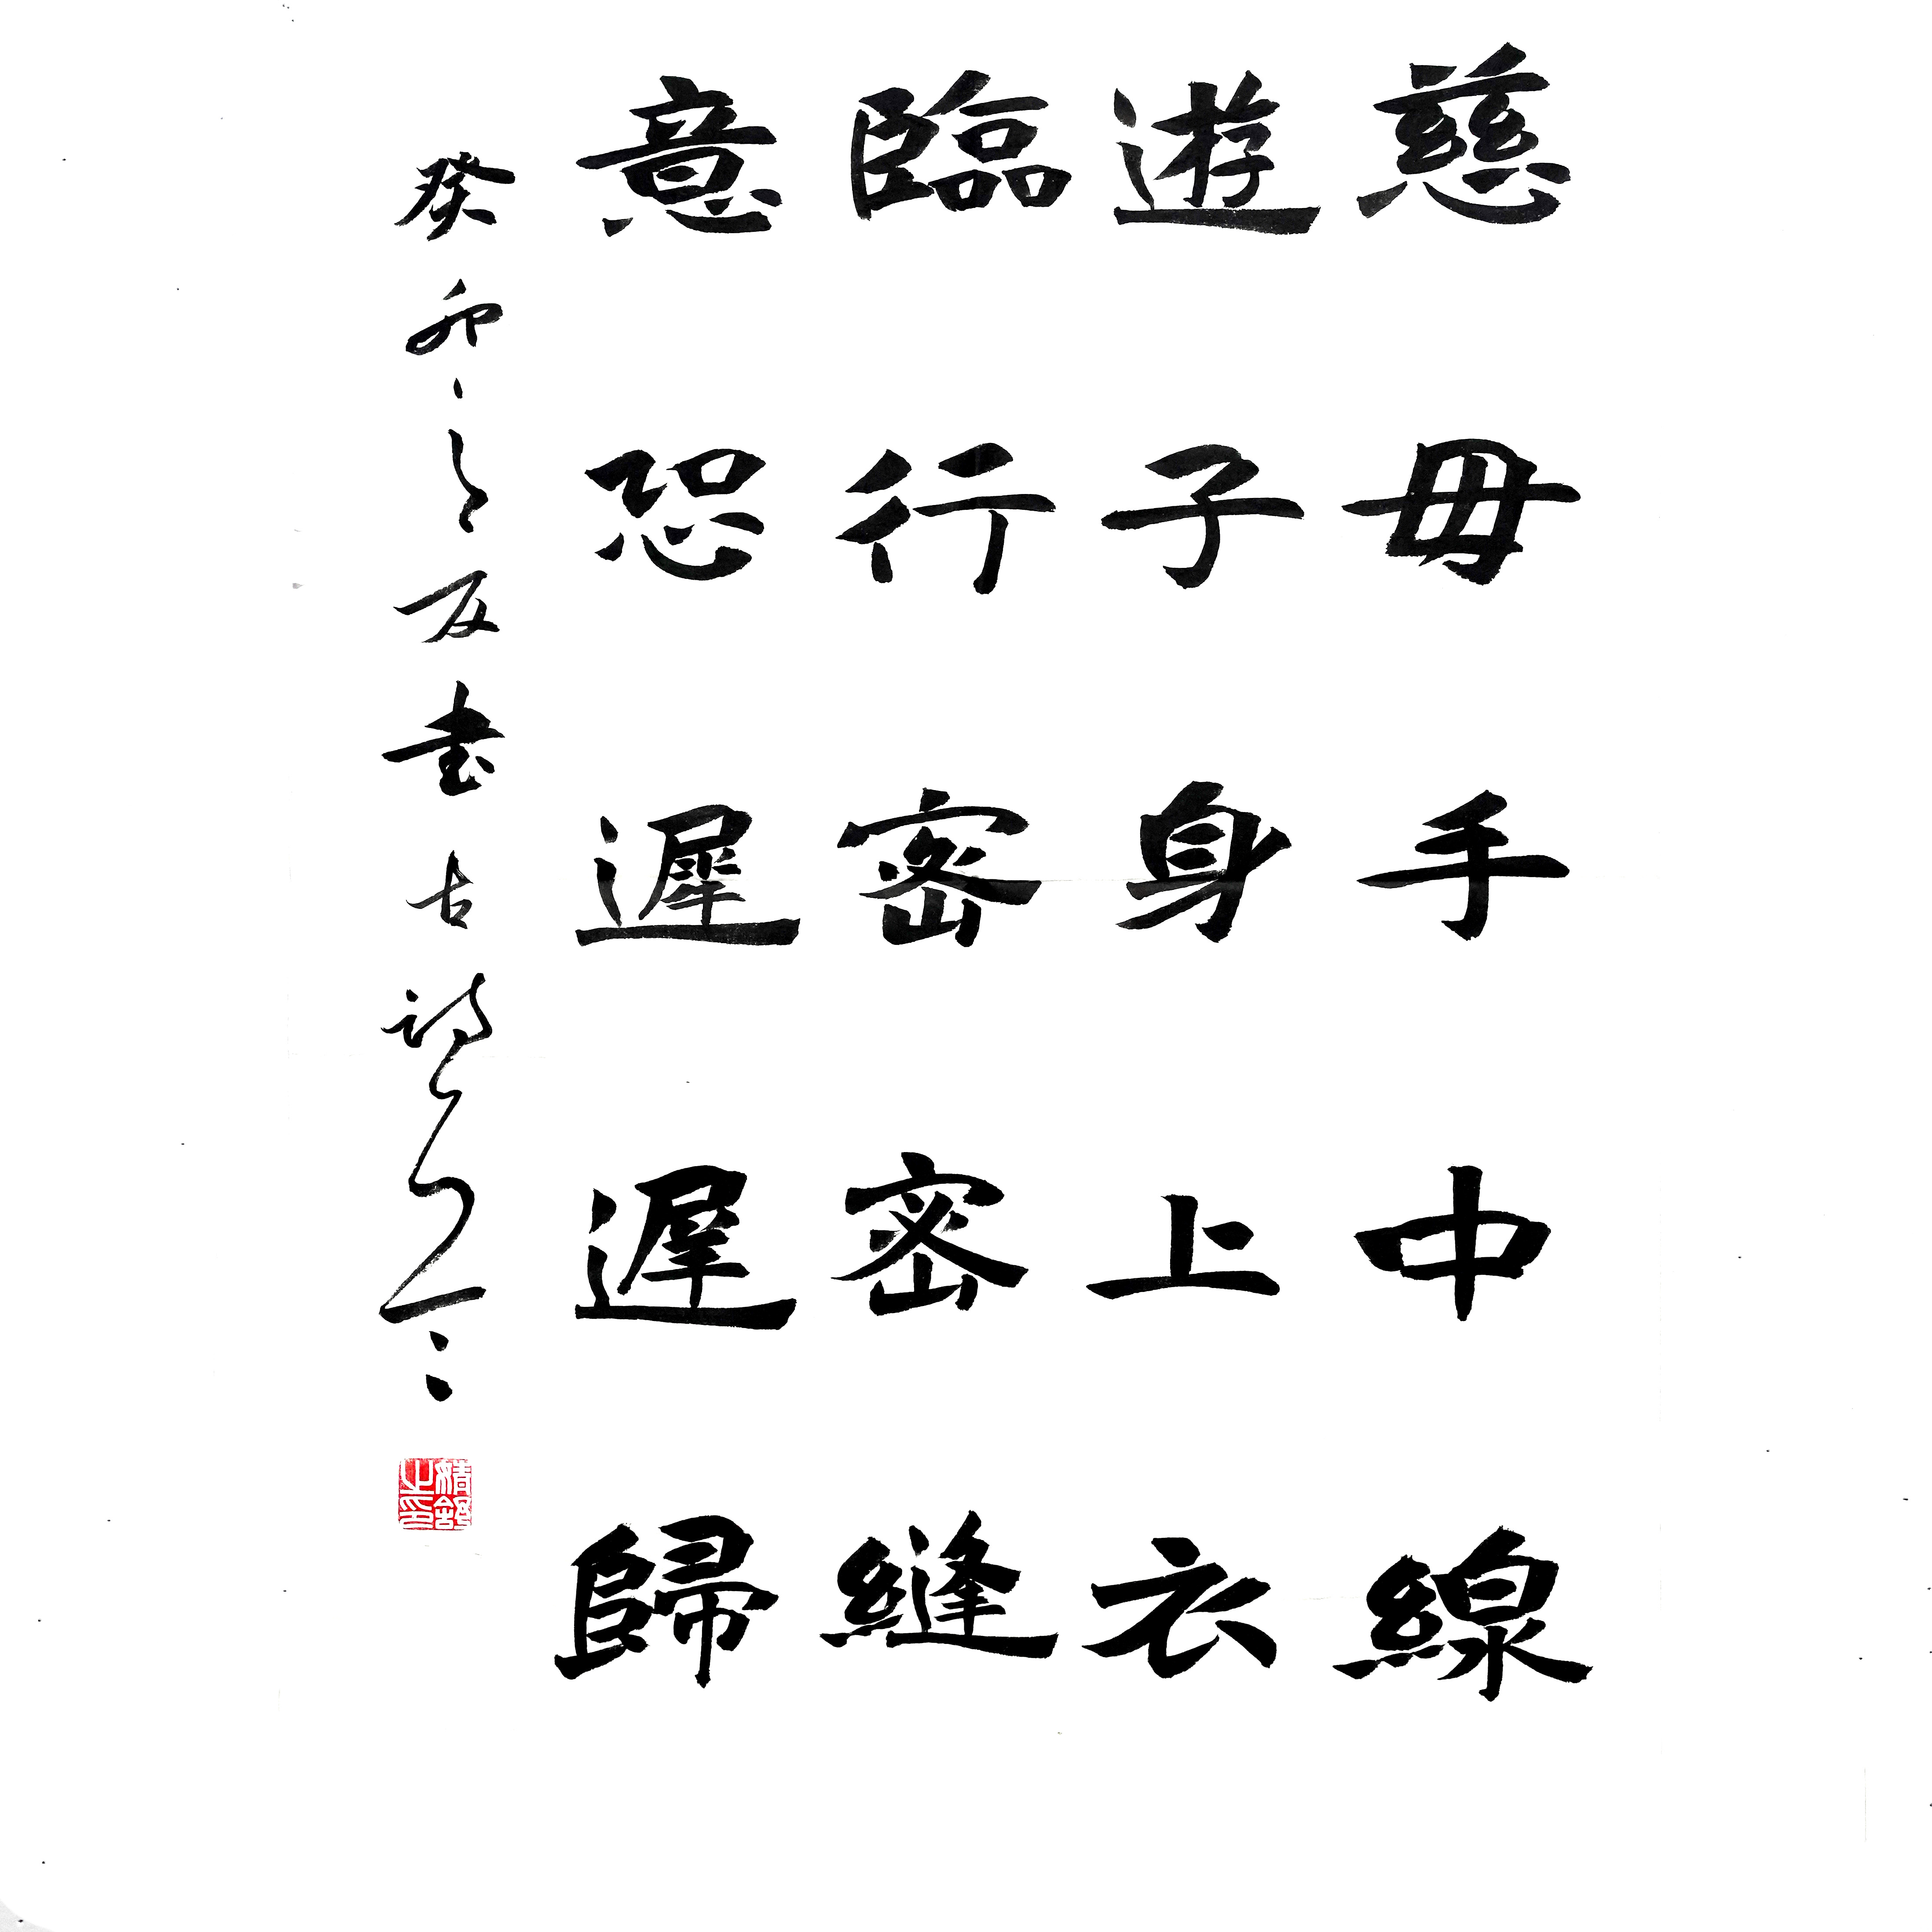 慈毋手中線
遊子身上衣
臨行密密縫
意恐遲遲歸
癸卯之夏書古詩